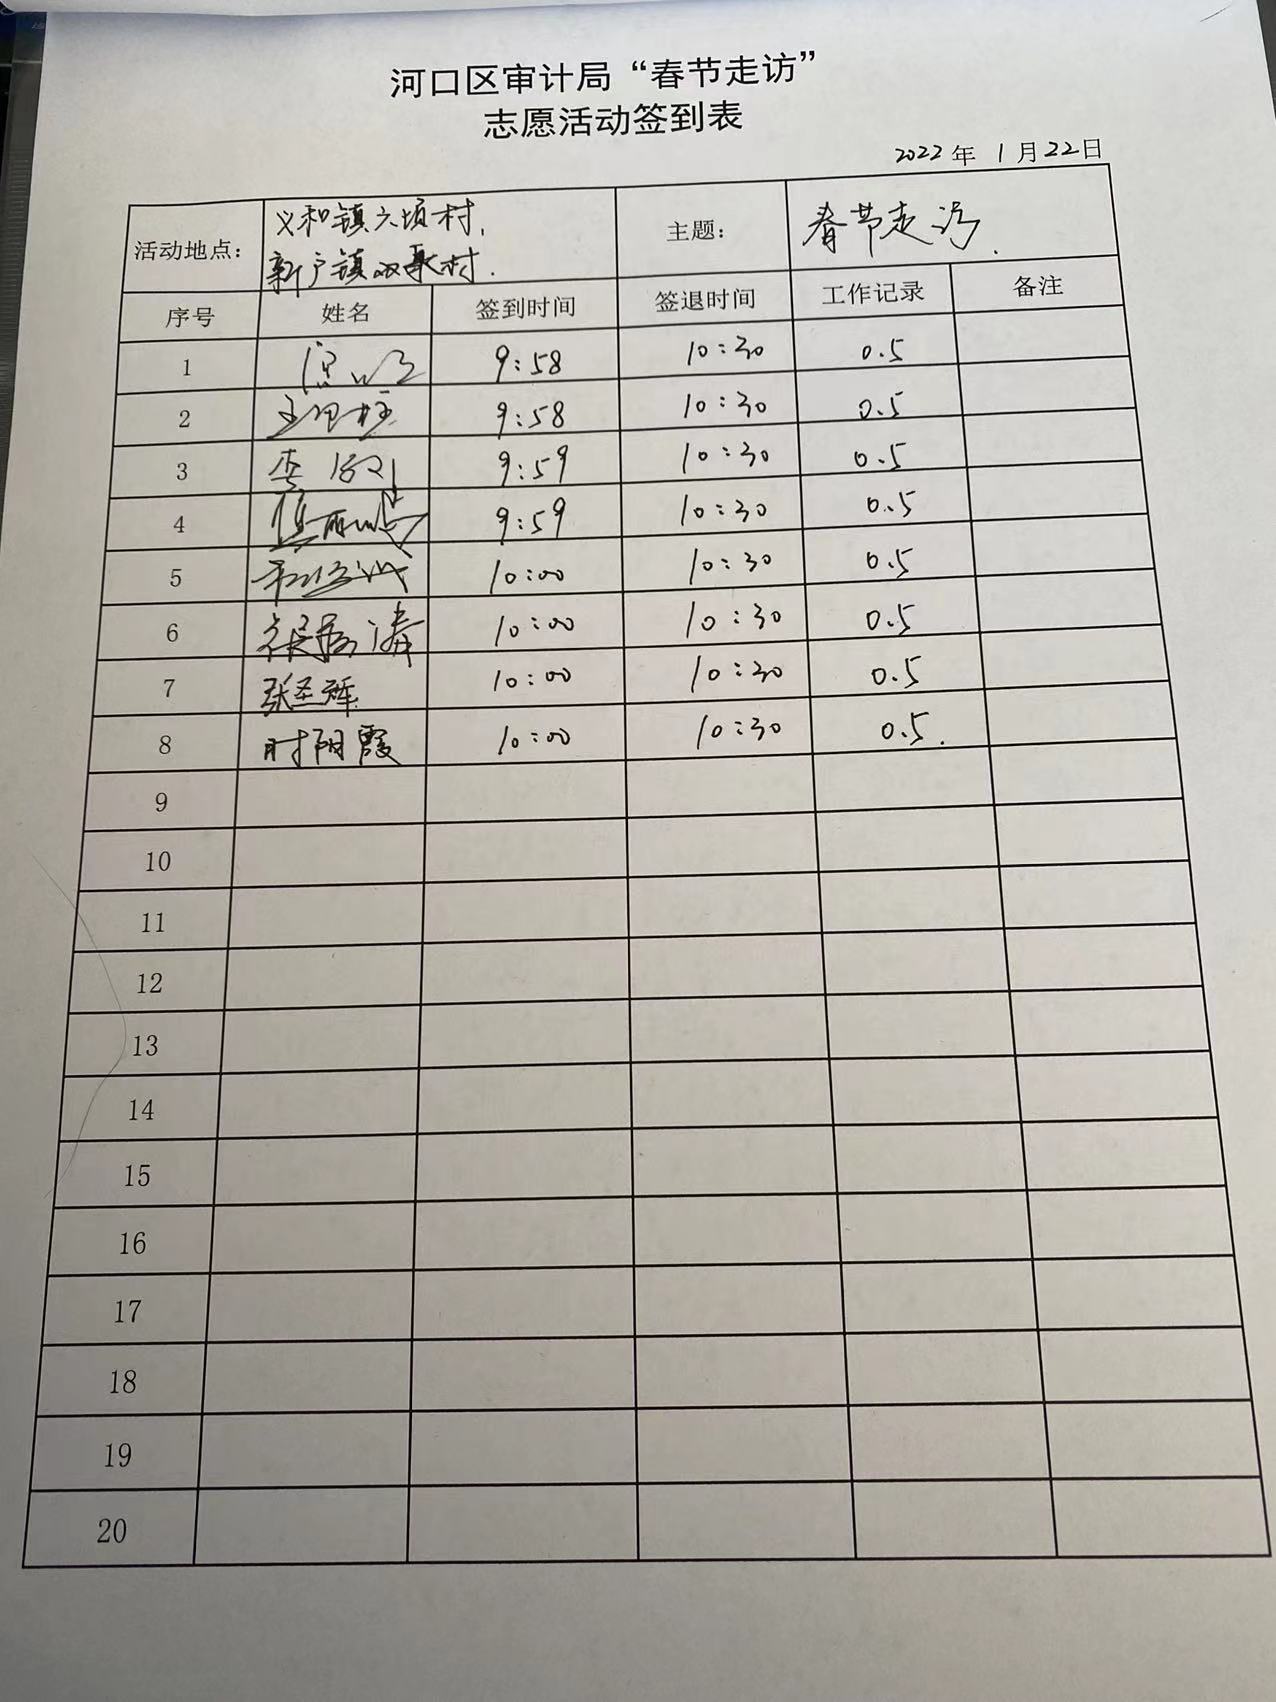 河口区审计局“春节走访”
志愿活动签到表
2022年 1月22日
活动地点: 义和镇六顷村, 新户镇双聚村. 主题: 春节走访.
序号 姓名 签到时间 签退时间 工作记录 备注
1 9:58 10:30 0.5
2 9:58 10:30 0.5
3 李 9:59 10:30 0.5
4 9:59 10:30 0.5
5 10:00 10:30 0.5
6 10:00 10:30 0.5
7 张圣辉 10:00 10:30 0.5
8 时阳霞 10:00 10:30 0.5.
9
10
11
12
13
14
15
16
17
18
19
20